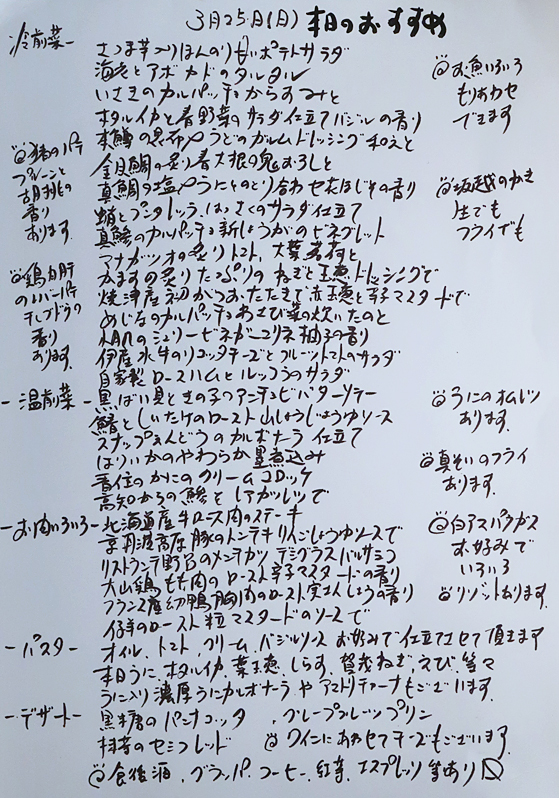 3月25日(日) 本日のおすすめ
冷前菜ー
さつま芋入りほんのり甘いポテトサラダ
海老とアボカドのタルタル
いさきのカルパッチョからすみと
ホタルイカと春野菜のサラダ仕立てバジルの香り
本鯛の昆布〆うどのガルムドレッシング和えと
金目鯛の炙り春大根の鬼おろしと
真鯛の塩〆うにとのとり合わせ大はじその香り
蛸とプンタレッラ、はっさくのサラダ仕立て
真鯵のカルパッチョ新しょうがのビネグレット
アナガツオの炙りトマト、大葉茗荷と
かますの炙りたっぷりのねぎと玉葱ドレッシングで
焼津産初がつお、たたきで赤玉葱と辛子マスタードで
めじなのカルパッチョわさび菜の
のジュリービネガージュリネ柚子の香り
伊産水牛のリコッタチーズとフルーツトマトのサラダ
自家製ロースハムとルッコラのサラダ
@お魚いろいろ
もりあわせ
できます
@坂越のかき
生でも
フライでも
@猪のパテ
プレーンと
胡桃の
香り
あります。
@鶏白肝
のレバーパテ
干しブドウの
香り
あります。
ー温前菜ー
黒ばい貝ときの子のアンチョビバターソテー
鰆としいたけのロースト山しょうじょうゆソース
スナップえんどうのカルボナーラ仕立て
はりいかのやわらか墨煮込み
香住のかにのクリームコロッケ
高知からの鯵とレアカツレツで
@うにのオムレツ
あります。
@真そいのフライ
あります。
ーお肉いろいろー
北海道産牛ロース肉のステーキ
京丹波高原豚のトンテキりんごしょうゆソースで
リストランテ野呂のメンチカツデミグラスバルサミコ
大山鶏もも肉のロースト辛子マスタードの香り
フランス産幼鴨胸肉のロースト実さんしょうの香り
仔羊のロースト粒マスタードのソースで
@白アスパラガス
お好みで
いろいろ
@リゾットあります。
ーパスター
オイル、トマト、クリーム、バジルソース お好みで仕立てさせて頂きます
本日うに、ホタルイカ、葉玉葱、しらす、九条ねぎ、えび、等々
うに入り濃厚うにカルボナーラやアマトリチャーナもございます。
ーデザートー
黒糖のパンナコッタ 、グレープフルーツプリン
抹茶のセミフレッド @ワインにあわせてチーズもございます。
@食後酒、グラッパ、コーヒー、紅茶、エスプレッソ等あり